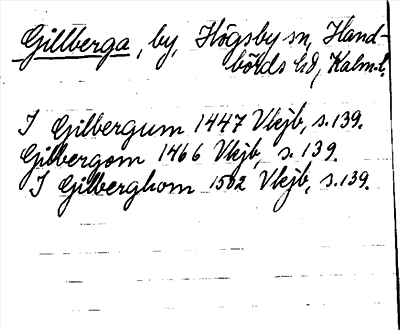 Gillberga, by, Högsby sn, Hand-
börds hd, Kalm.l.
I Gilbergum 1447 Vkjb, s.139.
Gilbergom 1466 Vkjb, s. 139.
I Gilberghom 1502 Vkjb, s.139.